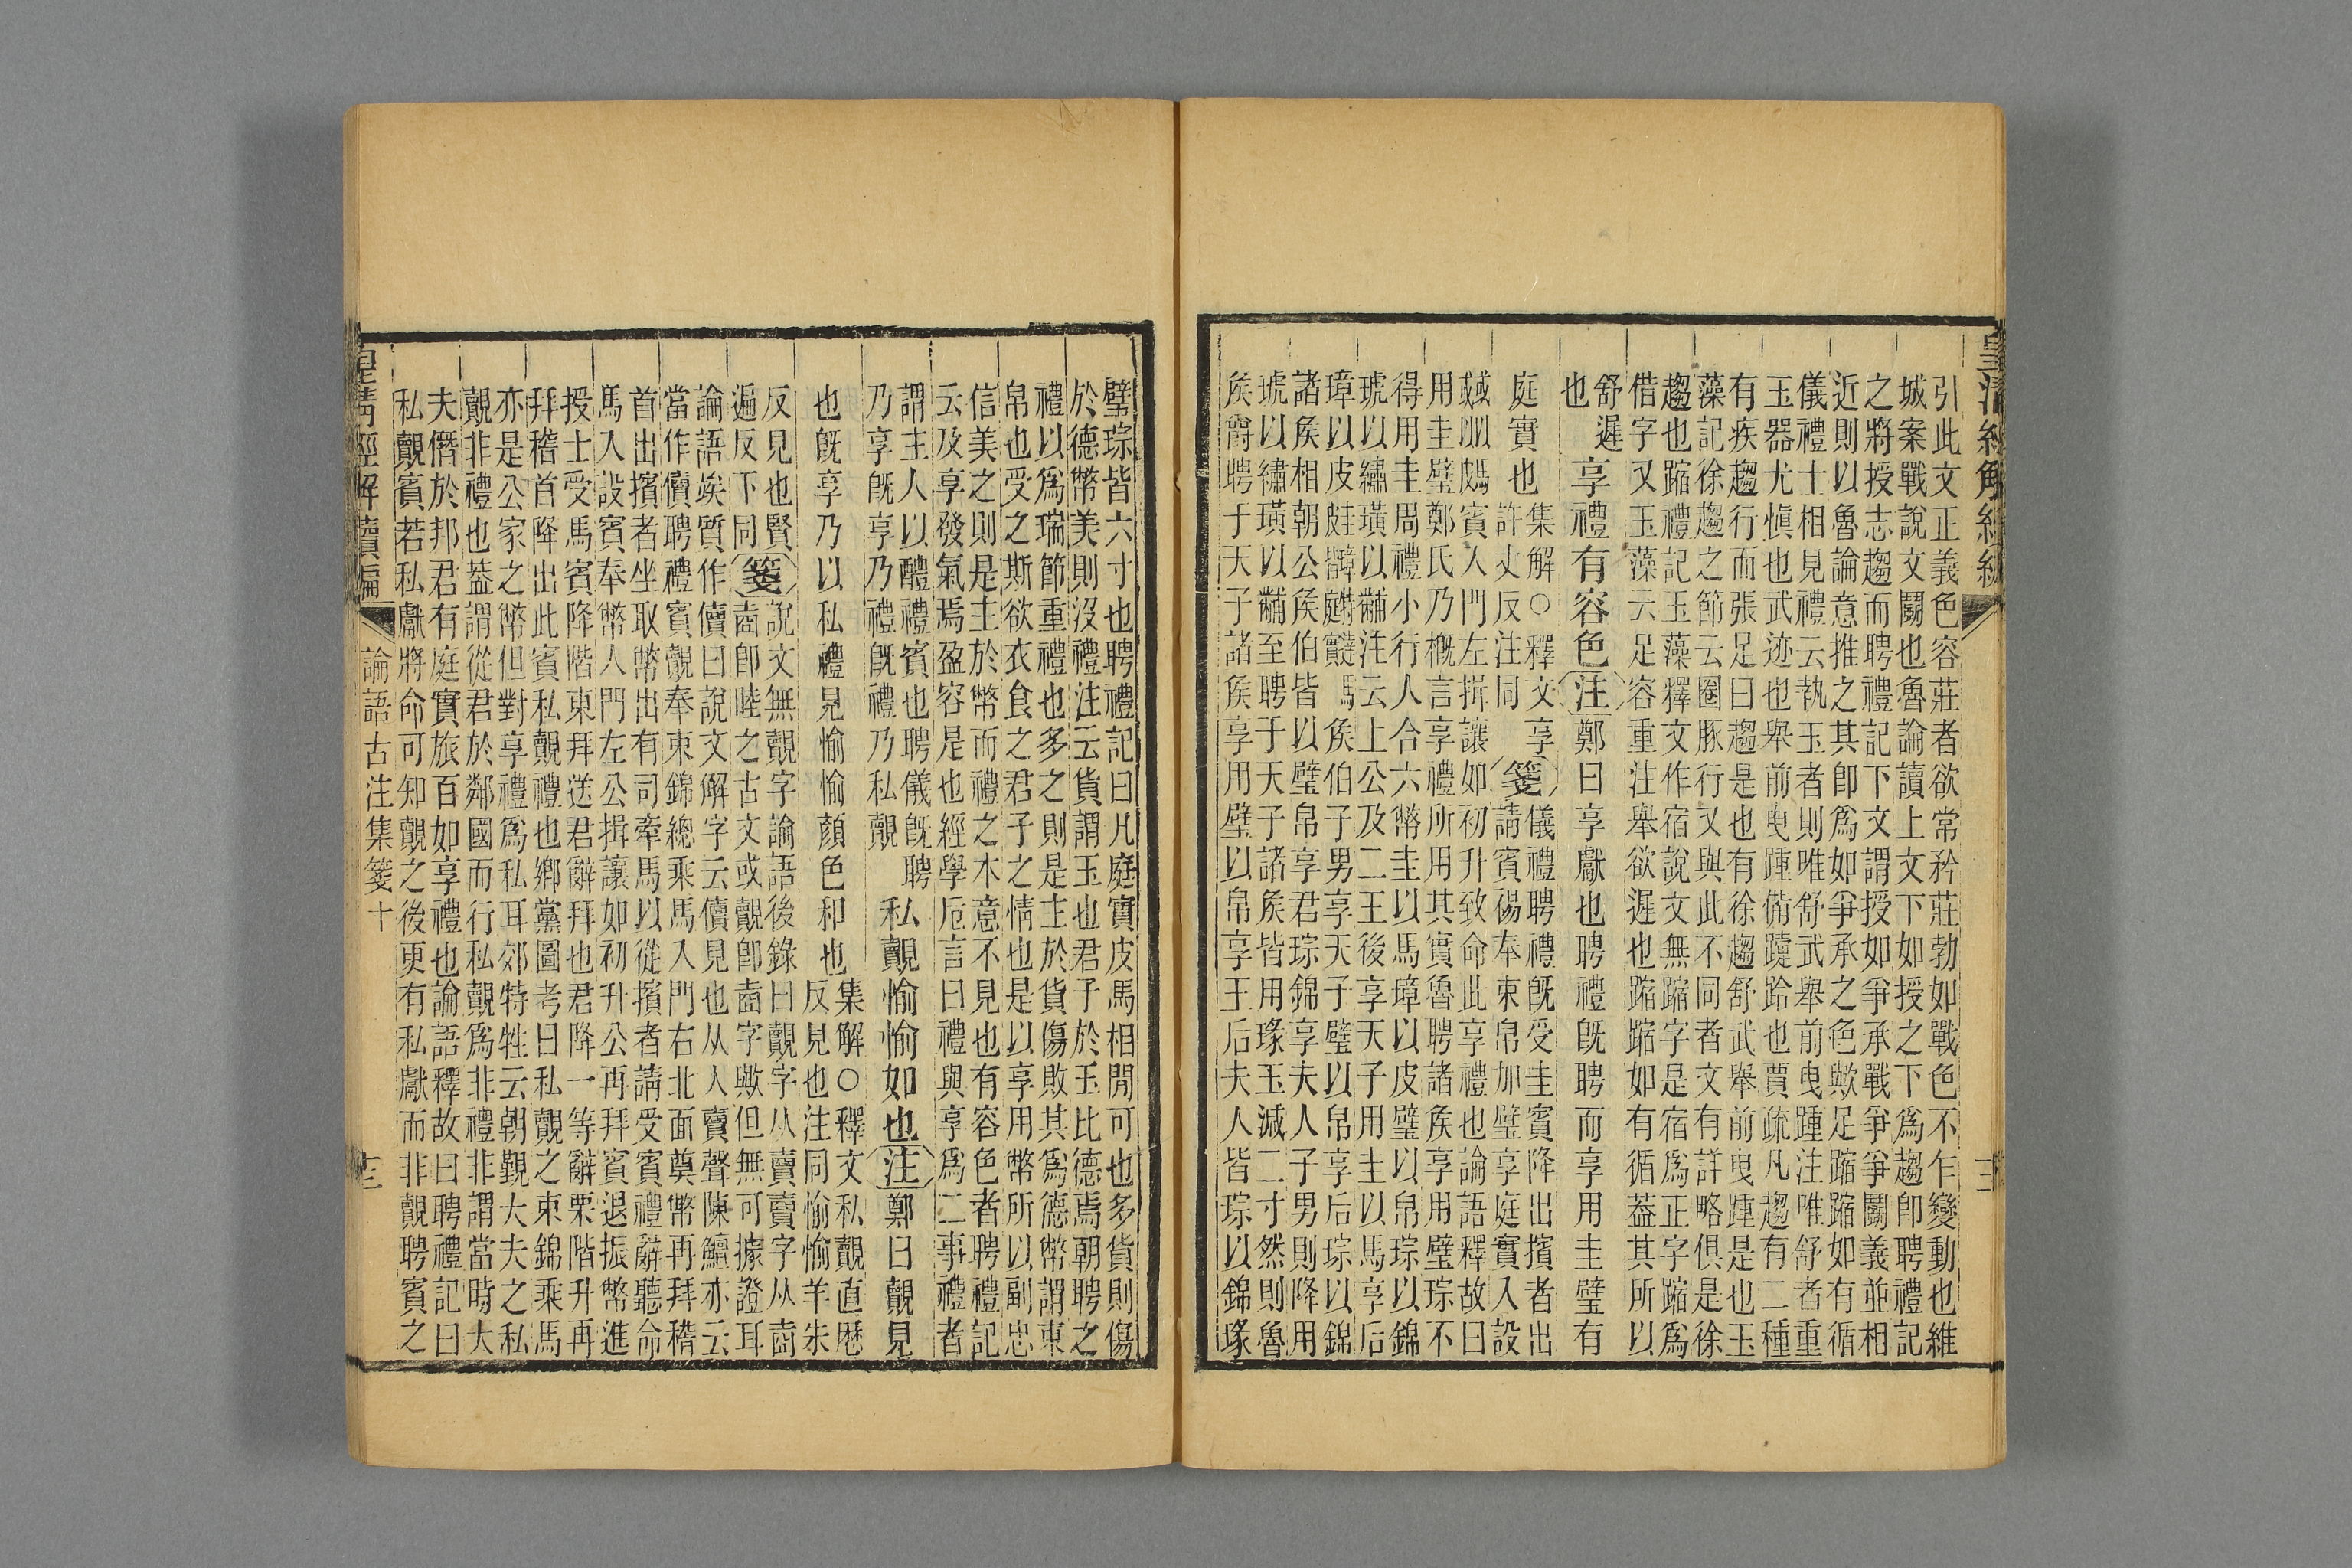 皇清經解續編
引此文正義色容莊者欲常矜莊勃如戰色不乍變動也維
城案戰說文鬬也魯論讀上文下如授之下爲趨卽聘禮記
之將授志趨而聘禮記下文謂授如爭承戰爭爭鬬義並相
近則以魯論意推之其卽爲如爭承之色歟足蹜蹜如有循
儀禮士相見禮云執玉者則唯舒武舉前曳踵注唯舒者重
玉器尤愼也武迹也舉前曳踵備蹪跲也賈疏凡趨有二種
有疾趨行而張足曰趨是也有徐趨舒武舉前曳踵是也玉
藻記徐趨之節云圈豚行又與此不同者文有詳略俱是徐
趨也蹜禮記玉藻釋文作宿說文無蹜字是宿爲正字蹜爲
借字又玉藻云足容重注舉欲遲也蹜蹜如有循蓋其所以
舒遲
也
享禮有容色
注
鄭曰享獻也聘禮旣聘而享用圭璧有
庭實也
集解○釋文享
許丈反注同
箋
儀禮聘禮旣受圭賓降出擯者出
請賓裼奉束帛加璧享庭實入設
賓入門左揖讓如初升致命此享禮也論語釋故曰
用圭璧鄭氏乃槪言享禮所用其實魯聘諸矦享用璧琮不
得用圭周禮小行人合六幣圭以馬璋以皮璧以帛琮以錦
琥以繡璜以黼注云上公及二王後享天子用圭以馬享后
璋以皮
矦伯子男享天子璧以帛享后琮以錦
諸矦相朝公矦伯皆以璧帛享君琮錦享夫人子男則降用
琥以繡璜以黼至聘于天子諸矦皆用瑑玉減二寸然則魯
矦爵聘于天子諸矦享用璧以帛享王后夫人皆琮以錦瑑
璧琮皆六寸也聘禮記曰凡庭實皮馬相閒可也多貨則傷
於德幣美則沒禮注云貨謂玉也君子於玉比德焉朝聘之
禮以爲瑞節重禮也多之則是主於貨傷敗其爲德幣謂束
帛也受之斯欲衣食之君子之情也是以享用幣所以副忠
信美之則是主於幣而禮之本意不見也有容色者聘禮記
云及享發氣焉盈容是也經學卮言曰禮與享爲二事禮者
謂主人以醴禮賓也聘儀旣聘
乃享旣享乃禮旣禮乃私覿
私覿愉愉如也
注
鄭曰覿見
也旣享乃以私禮見愉愉顏色和也
集解○釋文私覿直歷
反見也注同愉愉羊朱
反見也賢
遍反下同
箋
說文無覿字論語後錄曰覿字从賣賣字从𡍬
𡍬卽睦之古文或覿卽𡍬字歟但無可據證耳
論語竢質作儥曰說文解字云儥見也从人賣聲陳鱣亦云
當作儥聘禮賓覿奉束錦總乘馬入門右北面奠幣再拜稽
首出擯者坐取幣出有司牽馬以從擯者請受賓禮辭聽命
馬入設賓奉幣入門左公揖讓如初升公再拜賓退振幣進
授士受馬賓降階東拜送君辭拜也君降一等辭栗階升再
拜稽首降出此賓私覿禮也鄉黨圖考曰私覿之束錦乘馬
亦是公家之幣但對享禮爲私耳郊特牲云朝覲大夫之私
覿非禮也蓋謂從君於鄰國而行私覿爲非禮非謂當時大
夫僭於邦君有庭實旅百如享禮也論語釋故曰聘禮記曰
私覿賓若私獻將命可知覿之後更有私獻而非覿聘賓之
皇清經解續編
論語古注集箋十